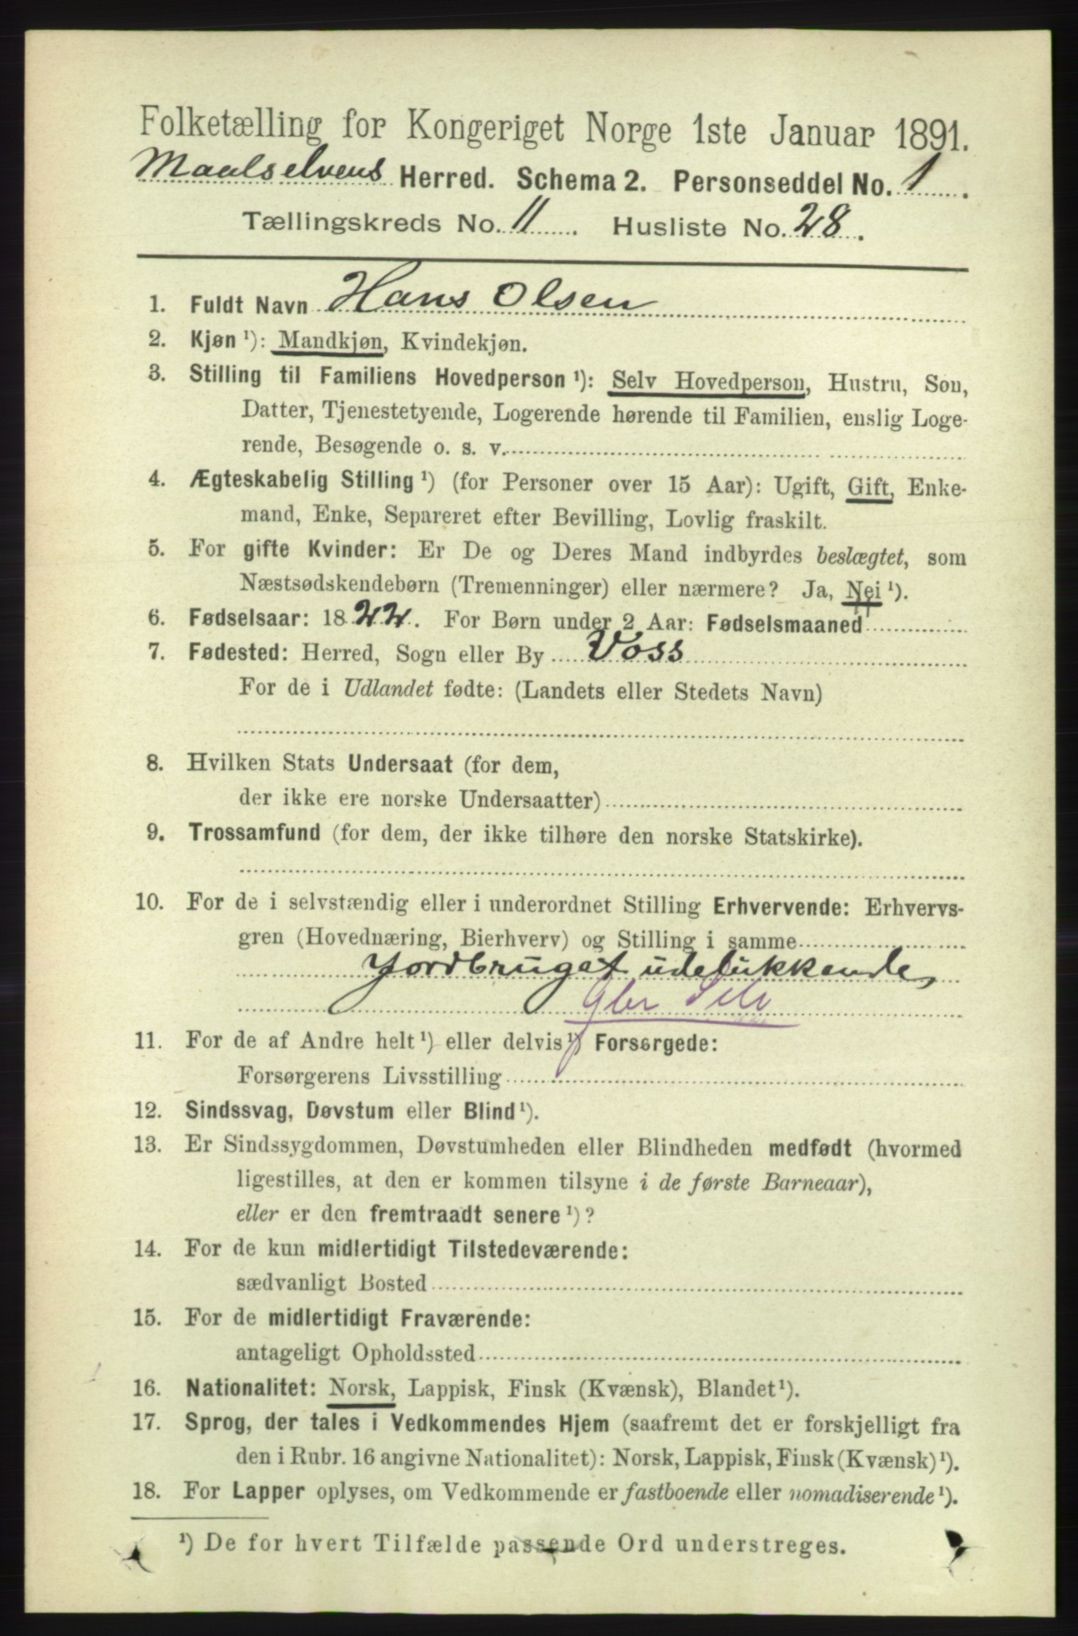 Folketælling for Kongeriget Norge 1ste Januar 1891.
Maalselvens Herred. Schema 2. Personseddel No. 1.
Tællingskreds No. 11. Husliste No. 28.
1. Fuldt Navn Hans Olsen
2. Kjøn ¹): Mandkjøn, Kvindekjøn.
3. Stilling til Familiens Hovedperson ¹): Selv Hovedperson, Hustru, Søn,
Datter, Tjenestetyende, Logerende hørende til Familien, enslig Loge-
rende, Besøgende o. s. v.
4. Ægteskabelig Stilling ¹) (for Personer over 15 Aar): Ugift, Gift, Enke-
mand, Enke, Separeret efter Bevilling, Lovlig fraskilt.
5. For gifte Kvinder: Er De og Deres Mand indbyrdes beslægtet, som
Næstsødskendebørn (Tremenninger) eller nærmere? Ja, Nei ¹).
6. Fødselsaar: 1822. For Børn under 2 Aar: Fødselsmaaned
7. Fødested: Herred, Sogn eller By Voss
For de i Udlandet fødte: (Landets eller Stedets Navn)
8. Hvilken Stats Undersaat (for dem,
der ikke ere norske Undersaatter)
9. Trossamfund (for dem, der ikke tilhøre den norske Statskirke).
10. For de i selvstændig eller i underordnet Stilling Erhvervende: Erhvervs-
gren (Hovednæring, Bierhverv) og Stilling i samme
Jordbruget udelukkende,
gbr Selv
11. For de af Andre helt ¹) eller delvis ¹) Forsørgede:
Forsørgerens Livsstilling
12. Sindssvag, Døvstum eller Blind ¹).
13. Er Sindssygdommen, Døvstumheden eller Blindheden medfødt (hvormed
ligestilles, at den er kommen tilsyne i de første Barneaar),
eller er den fremtraadt senere ¹)?
14. For de kun midlertidigt Tilstedeværende:
sædvanligt Bosted
15. For de midlertidigt Fraværende:
antageligt Opholdssted
16. Nationalitet: Norsk, Lappisk, Finsk (Kvænsk), Blandet ¹).
17. Sprog, der tales i Vedkommendes Hjem (saafremt det er forskjelligt fra
den i Rubr. 16 angivne Nationalitet): Norsk, Lappisk, Finsk (Kvænsk) ¹).
18. For Lapper oplyses, om Vedkommende er fastboende eller nomadiserende ¹).
¹) De for hvert Tilfælde passende Ord understreges.